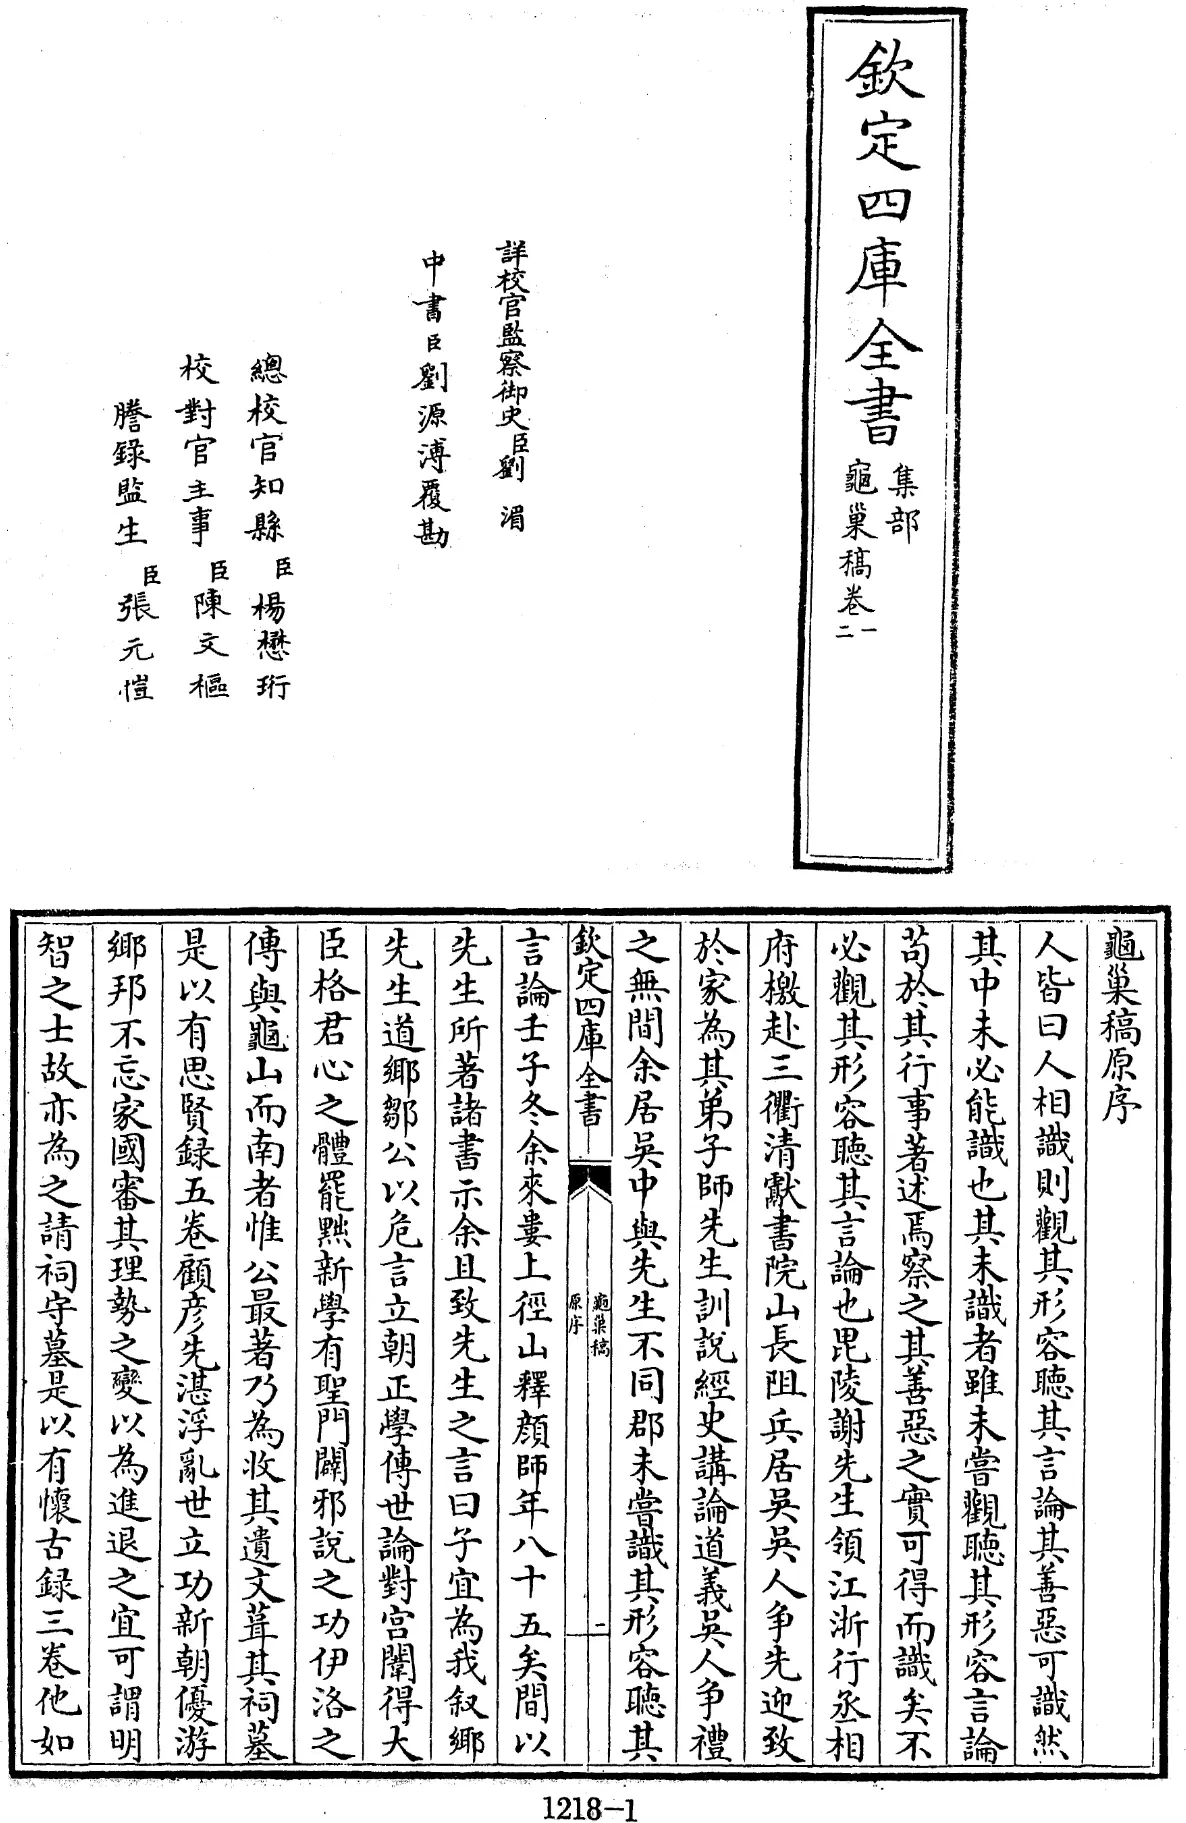 欽定四庫全書
集部
龜巢稿卷一
二
詳校官監察御史臣劉湄
中書臣劉源溥覆勘
總校官知縣臣楊懋珩
校對官主事臣陳文樞
謄錄監生臣張元愷
龜巢稿原序
人皆曰人相識則觀其形容聽其言論其善惡可識然
其中未必能識也其未識者雖未嘗觀聽其形容言論
苟於其行事著述焉察之其善惡之實可得而識矣不
必觀其形容聽其言論也毘陵謝先生領江浙行丞相
府檄赴三衢清獻書院山長阻兵居吳吳人爭先迎致
於家為其弟子師先生訓說經史講論道義吳人爭禮
之無間余居吳中與先生不同郡未嘗識其形容聽其
欽定四庫全書
龜巢稿
原序
二
言論壬子冬余來婁上徑山釋顏師年八十五矣間以
先生所著諸書示余且致先生之言曰子宜為我叙鄉
先生道鄉鄒公以危言立朝正學傳世論對宮闈得大
臣格君心之體罷黜新學有聖門闢邪說之功伊洛之
傳與龜山而南者惟公最著乃為收其遺文葺其祠墓
是以有思賢録五卷顧彦先湛浮亂世立功新朝優游
鄉邦不忘家國審其理勢之變以為進退之宜可謂明
智之士故亦為之請祠守墓是以有懷古録三卷他如
1218-1